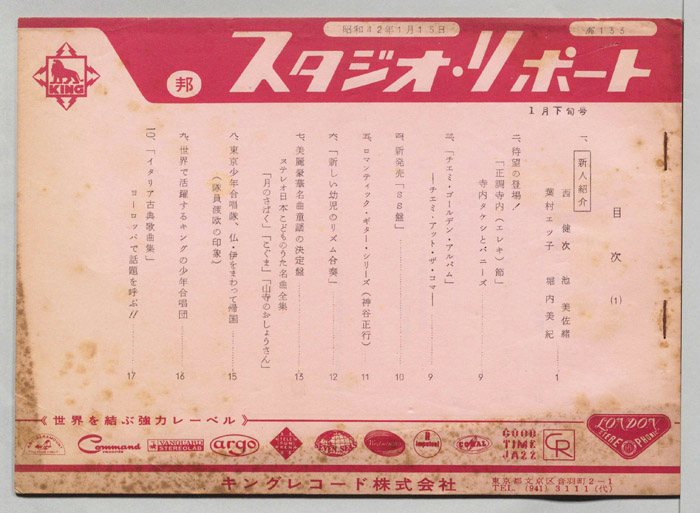 昭和42年1月15日
KING
邦
スタジオ・リポート
1月下旬号
目次 (1)
一、新人紹介
西 健次 池 美佐緒
葉村エツ子 堀内美紀………1
二、待望の登場!
「正調寺内(エレキ)節」
寺内タケシとバニーズ………9
三、「チエミ・ゴールデン・アルバム」
―チエミ・アット・ザ・コマ―………9
四、新発売「88盤」………10
五、ロマンティック・ギター・シリーズ(神谷正行)………11
六、「新しい幼児のリズム合奏」………12
七、美麗豪華名曲童謡の決定盤
ステレオ日本こどものうた名曲全集………13
「月のさばく」「こぐま」「山寺のおしょうさん」
八、東京少年合唱隊 仏・伊をまわって帰国………15
(隊員渡欧の印象)
九、世界で活躍するキングの少年合唱団………16
一〇、「イタリア古典歌曲集」
ヨーロッパで話題を呼ぶ!!………17
《世界を結ぶ強力レーベル》
Command
records
VANGUARD
STEREOLAB
argo
TELEFUNKEN
SEVEN SEAS
impulse!
CORAL
GOOD
TIME
JAZZ
CR
LONDON
STEREO PHONIC
キングレコード株式会社
東京都文京区音羽町2−1
TEL (941) 3111(代)